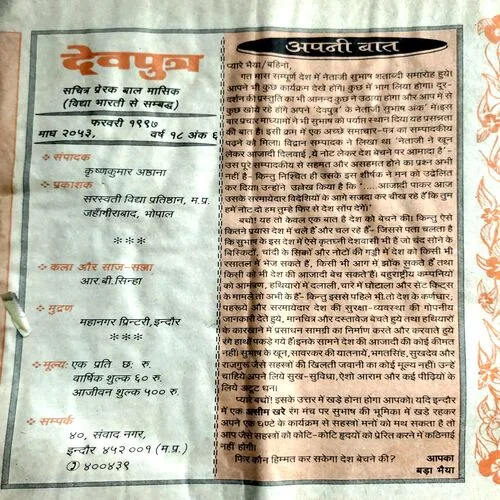 देवपुत्र
सचित्र प्रेरक बाल मासिक
(विद्या भारती से सम्बद्ध)
फरवरी १९९७
माघ २०५३, वर्ष १८ अंक ६
संपादक
कृष्णकुमार अष्ठाना
प्रकाशक
सरस्वती विद्या प्रतिष्ठान, म.प्र.
जहाँगीराबाद, भोपाल
***
कला और साज-सज्जा
आर.बी.सिन्हा
मुद्रण
महानगर प्रिन्टरी, इन्दौर
***
मूल्य: एक प्रति छः रु.
वार्षिक शुल्क ६० रु.
आजीवन शुल्क ५०० रु.
सम्पर्क
४०, संवाद नगर,
इन्दौर ४५२ ००१ (म.प्र.)
४००४३९
अपनी बात
प्यारे भैया/बहिनो,
गत मास सम्पूर्ण देश में नेताजी सुभाष शताब्दी समारोह हुये।
आपने भी कुछ कार्यक्रम देखे होंगे। कुछ में भाग लिया होगा। दूर-
दर्शन की प्रस्तुति का भी आनन्द कुछ ने उठाया होगा और आप में से
कुछ खोये रहे होंगे अपने 'देवपुत्र' के नेताजी सुभाष अंक में। इस
बार प्रचार माध्यमों ने भी सुभाष को पर्याप्त स्थान दिया यह प्रसन्नता
की बात है। इसी क्रम में एक अच्छे समाचार-पत्र का सम्पादकीय
पढ़ने को मिला। विद्वान सम्पादक ने लिखा था 'नेताजी ने खून
लेकर आजादी दिलवाई, ये नोट लेकर देश बेचने पर आमादा है'-
उस पूरे सम्पादकीय से सहमत और असहमत होने का प्रश्न अभी
नहीं है- किन्तु निश्चित ही उसके इस शीर्षक ने मन को उद्वेलित
कर दिया। उन्होंने उल्लेख किया है कि '.....आजादी पाकर आज
उसके सरमायेदार विदेशियों के आगे सजदा कर चीख रहे हैं कि तुम
हमें नोट दो हम तुम्हे फिर से देश सोंप देंगे।'
बच्चो! यह तो केवल एक बात है देश को बेचने की। किन्तु ऐसे
कितने प्रयास देश में चले हैं और चल रहे हैं- जिससे पता चलता है
कि सुभाष के इस देश में ऐसे कृतघ्नी देशवासी भी है जो चंद सोने के
बिस्किटों, चांदी के सिक्कों और नोटों की गड्डी में देश को किसी भी
रसातल में भेज सकते हैं, किसी भी आग में झोंक सकते हैं तथा
किसी को भी देश की आजादी बेच सकते हैं। बहुराष्ट्रीय कम्पनियों
को आमंत्रण, हथियारों में दलाली, चारे में घोटाला और सेंट किट्स
के मामले तो अभी के हैं- किन्तु इससे पहिले भी, तो देश के कर्णधार,
पहरूये और सरमायेदार देश की सुरक्षा -व्यवस्था की गोपनीय
जानकारी देते हुये, मानचित्र और दस्तावेज बेचते हुये तथा हथियारों
के कारखाने में प्रसाधन सामग्री का निर्माण करते और करवाते हुये
रंगे हाथों पकड़े गये हैं। इनके सामने देश की आजादी की कोई कीमत
नहीं। सुभाष के खून, सावरकर की यातनायें, भगतसिंह, सुखदेव और
राजगुरू जैसे सहस्त्रों की खिलती जवानी का कोई मूल्य नहीं। उन्हें
चाहिये अपने लिये सुख-सुविधा, ऐशो आराम और कई पीढ़ियों के
लिये अटूट धन।
प्यारे बच्चो! इसके उत्तर में खड़े होना होगा आपको। यदि इन्दौर
में एक असीम खरे रंग मंच पर सुभाष की भूमिका में खड़े रहकर
अपने एक घण्टे के कार्यक्रम से सहस्त्रों मनों को मथ सकता है तो
आप जैसे सहस्त्रों को कोटि-कोटि हृदयों को प्रेरित करने में कठिनाई
नहीं होगी।
फिर कौन हिम्मत कर सकेगा देश बेचने की? आपका
बड़ा भैया